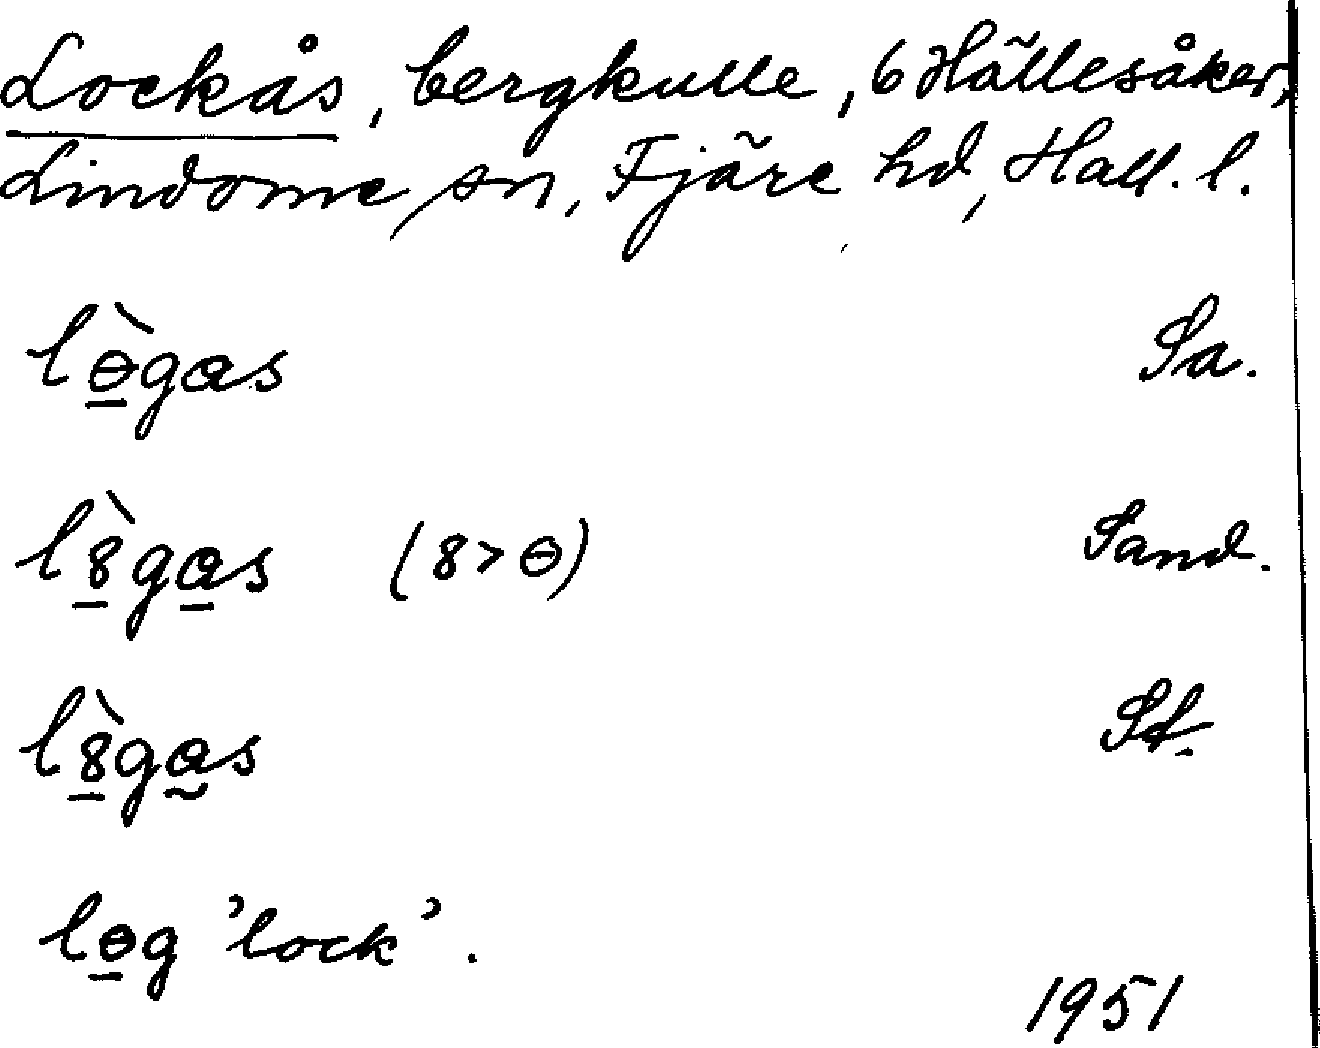 Lockås, bergkulle, 6 Hällesåker,
Lindome sn, Fjäre hd, Hall. l.
lɵ̠̀gas Sa.
l8̠̀ga̠s (8>ɵ) Sand.
l8̠̀ga̰s St.
lɵ̠g 'lock'.
1951